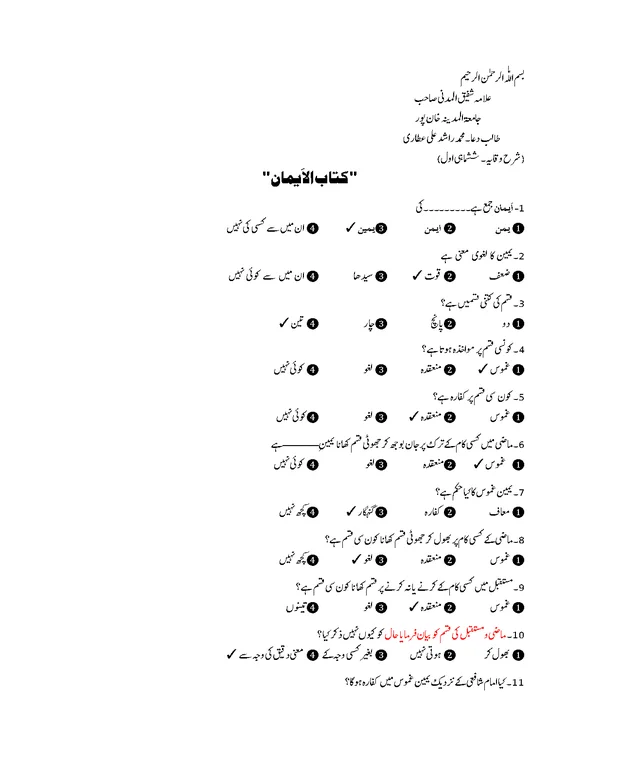 بسم اللہ الرحمٰن الرحیم
علامہ شفیق المدنی صاحب
جامعۃ المدینہ خان پور
طالب دعا۔ محمد راشد علی عطاری
(شرح وقایہ۔ ششماہی اول)
"کتاب الأیمان"
1- ایمان جمع ہے۔۔۔۔۔۔۔۔۔کی
❶ یمن ❷ ایمن ❸ یمین ✓ ❹ ان میں سے کسی کی نہیں
2۔ یمین کا لغوی معنی ہے
❶ ضعف ❷ قوت ✓ ❸ سیدھا ❹ ان میں سے کوئی نہیں
3۔ قسم کی کتنی قسمیں ہے؟
❶ دو ❷ پانچ ❸ چار ❹ تین ✓
4۔ کونسی قسم پر مواخذہ ہوتا ہے؟
❶ غموس ✓ ❷ منعقدہ ❸ لغو ❹ کوئی نہیں
5۔ کون سی قسم پر کفارہ ہے؟
❶ غموس ❷ منعقدہ ✓ ❸ لغو ❹ کوئی نہیں
6۔ ماضی میں کسی کام کے ترک پر جان بوجھ کر جھوٹی قسم کھانا یمینِ______ہے
❶ غموس ✓ ❷ منعقدہ ❸ لغو ❹ کوئی نہیں
7۔ یمین غموس کا کیا حکم ہے؟
❶ معاف ❷ کفارہ ❸ گنہگار ✓ ❹ کچھ نہیں
8۔ ماضی کے کسی کام پر بھول کر جھوٹی قسم کھانا کون سی قسم ہے؟
❶ غموس ❷ منعقدہ ❸ لغو ✓ ❹ کچھ نہیں
9۔ مستقبل میں کسی کام کے کرنے یا نہ کرنے پر قسم کھانا کون سی قسم ہے؟
❶ غموس ❷ منعقدہ ✓ ❸ لغو ❹ تینوں
10۔ ماضی و مستقبل کی قسم کو بیان فرمایا حال کو کیوں نہیں ذکر کیا؟
❶ بھول کر ❷ ہوتی نہیں ❸ بغیر کسی وجہ کے ❹ معنی دقیق کی وجہ سے ✓
11۔ کیا امام شافعی کے نزدیک یمین غموس میں کفارہ ہوگا؟